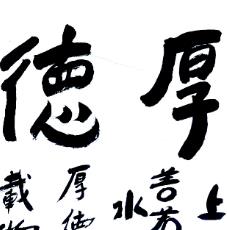 厚徳
上
善若
水
厚德
載